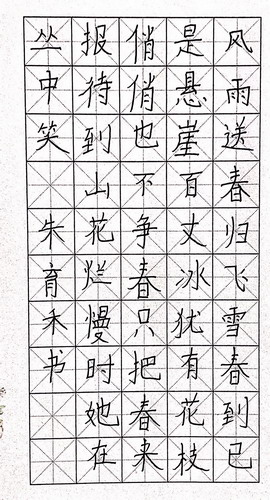 风雨送春归飞雪春到已
是悬崖百丈冰犹有花枝
俏俏也不争春只把春来
报待到山花烂慢时她在
丛中笑 朱育禾书